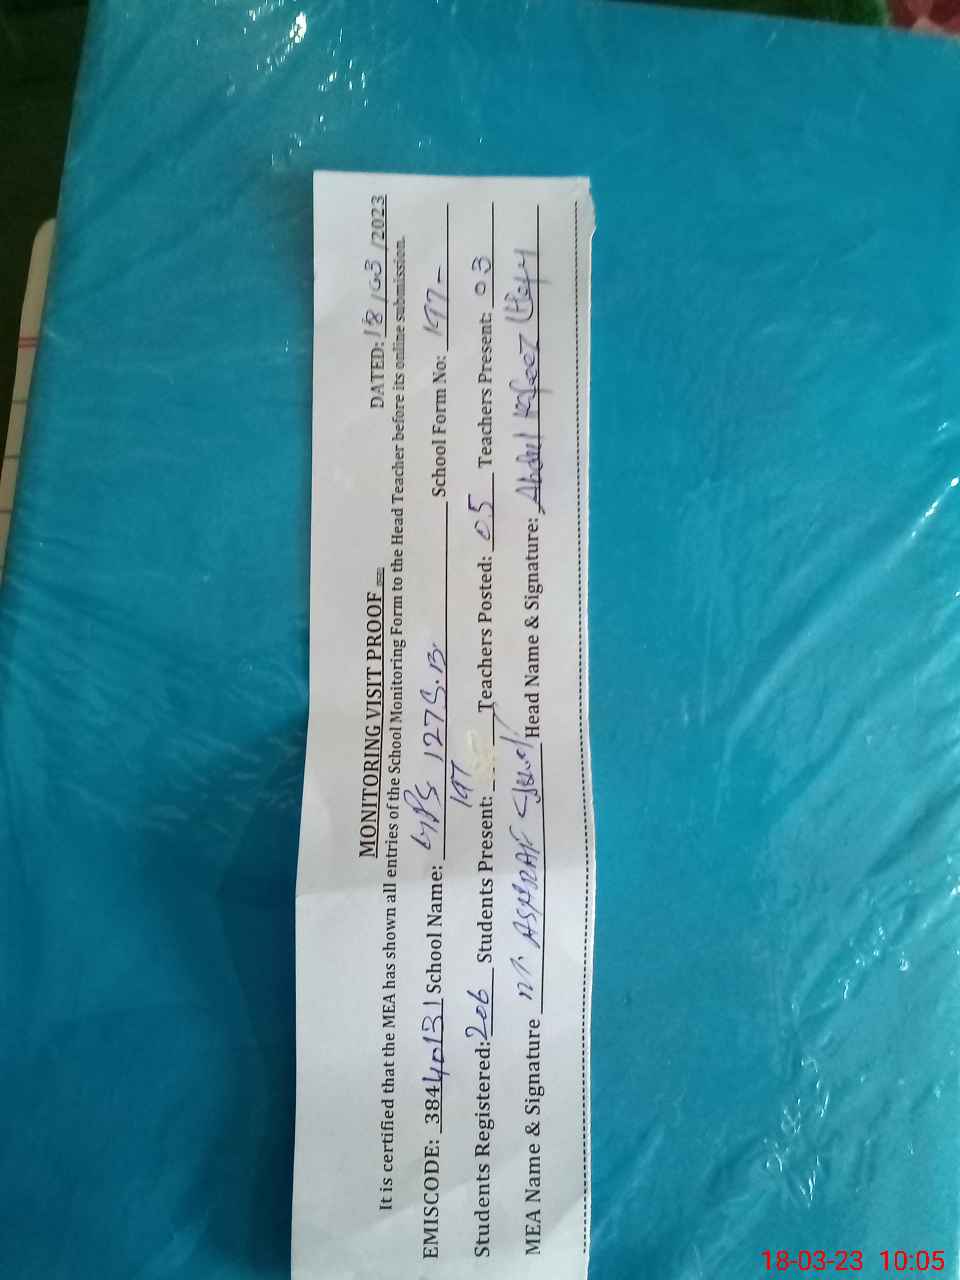 MONITORING VISIT PROOF
DATED: 18/03/2023
It is certified that the MEA has shown all entries of the School Monitoring Form to the Head Teacher before its online submission.
EMISCODE: 38440131 School Name: GPS 127 S.B. School Form No: 197-
197
Students Registered: 206 Students Present: Teachers Posted: 05 Teachers Present: 03
MEA Name & Signature M. ASHRAF Head Name & Signature: Abdul Hafeez
18-03-23 10:05